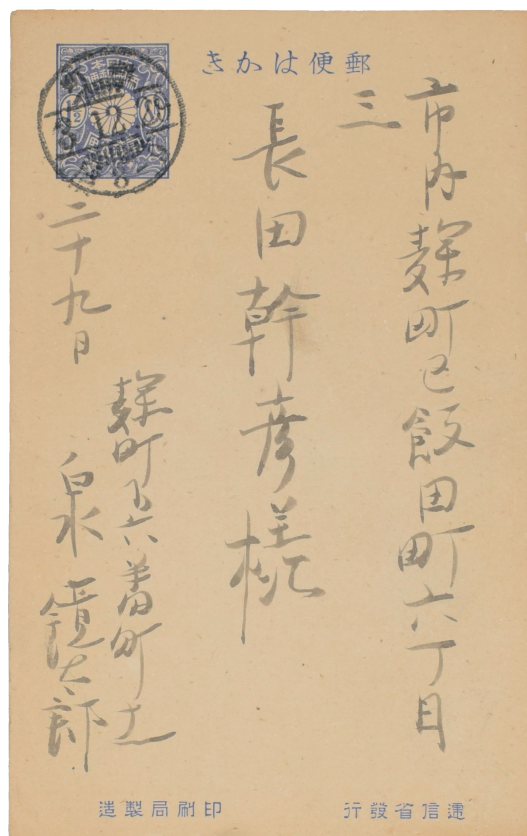 郵便はかき
市内麹町区飯田町六丁目
三
長田幹彦様
二十九日
麹町下六番町十一
泉鏡太郎
1½
12
8
逓信省發行
印刷局製造